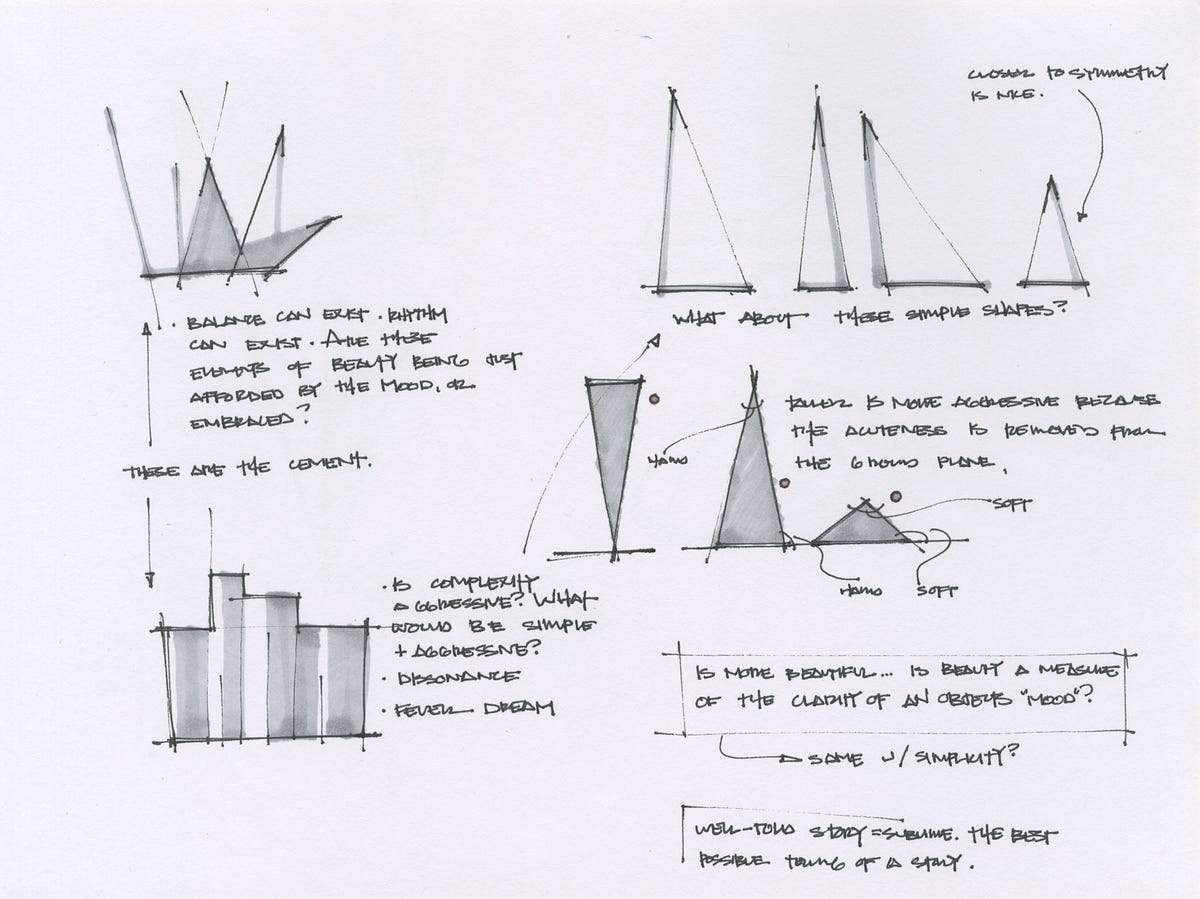 CLOSER TO SYMMETRY
IS NICE.
WHAT ABOUT THESE SIMPLE SHAPES?
· BALANCE CAN EXIST · RHYTHM
CAN EXIST. ARE THESE
ELEMENTS OF BEAUTY BEING JUST
AFFORDED BY THE MOOD, OR
EMBRACED?
THESE ARE THE CEMENT.
TALLER IS MORE AGGRESSIVE BECAUSE
THE ACUTENESS IS REMOVED FROM
THE GROUND PLANE.
HARD
SOFT
HARD
SOFT
· IS COMPLEXITY
AGGRESSIVE? WHAT
WOULD BE SIMPLE
+ AGGRESSIVE?
· DISSONANCE
· FEVER DREAM
IS MORE BEAUTIFUL... IS BEAUTY A MEASURE
OF THE CLARITY OF AN OBJECTS "MOOD"?
SAME W/ SIMPLICITY?
WELL-TOLD STORY = SUBLIME. THE BEST
POSSIBLE TELLING OF A STORY.